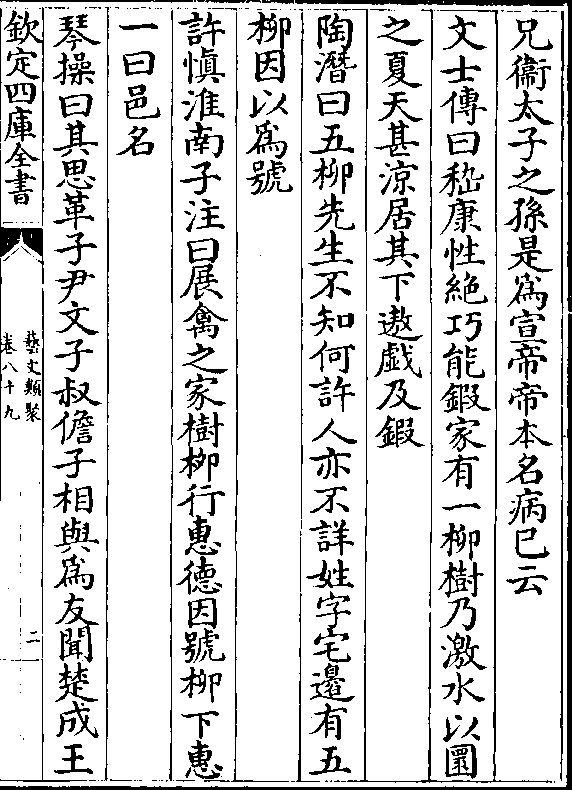 兄衞太子之孫是爲宣帝帝本名病已云
文士傳曰嵇康性絶巧能鍜家有一柳樹乃激水以圜
之夏天甚涼居其下遨戯及鍜
陶潛曰五柳先生不知何許人亦不詳姓字宅邊有五
柳因以爲號
許慎淮南子注曰展禽之家樹柳行惠德因號柳下惠
一曰邑名
琴操曰其思革子尹文子叔儋子相與爲友聞楚成王
欽定四庫全書
藝文類聚
卷八十九
二